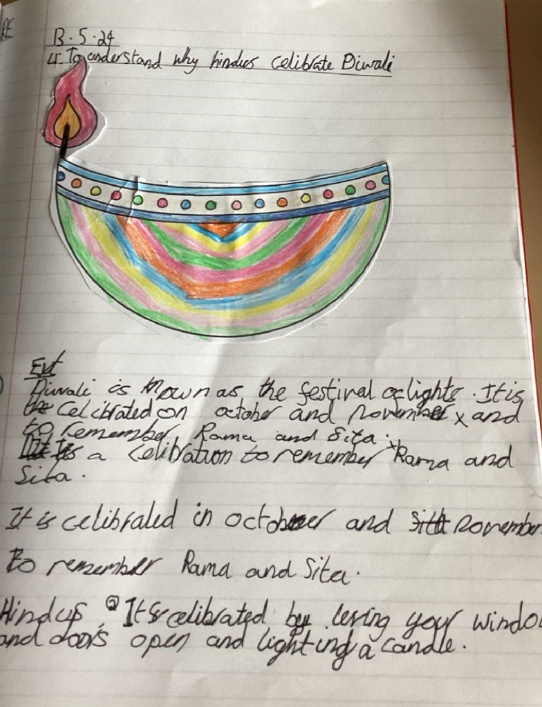 RE
13.5.24
L: To understand why hindus celibrate Diwali
Ext
Diwali is known as the festival of lights. It is
the celcibrated on october and november x and
to remember Rama and Sita.
It is a celibration to remember Rama and
Sita.
It is celibrated in october and november
to remember Rama and Sita.
Hindus. It is celibrated by leving your windo
and doors open and lighting a candle.